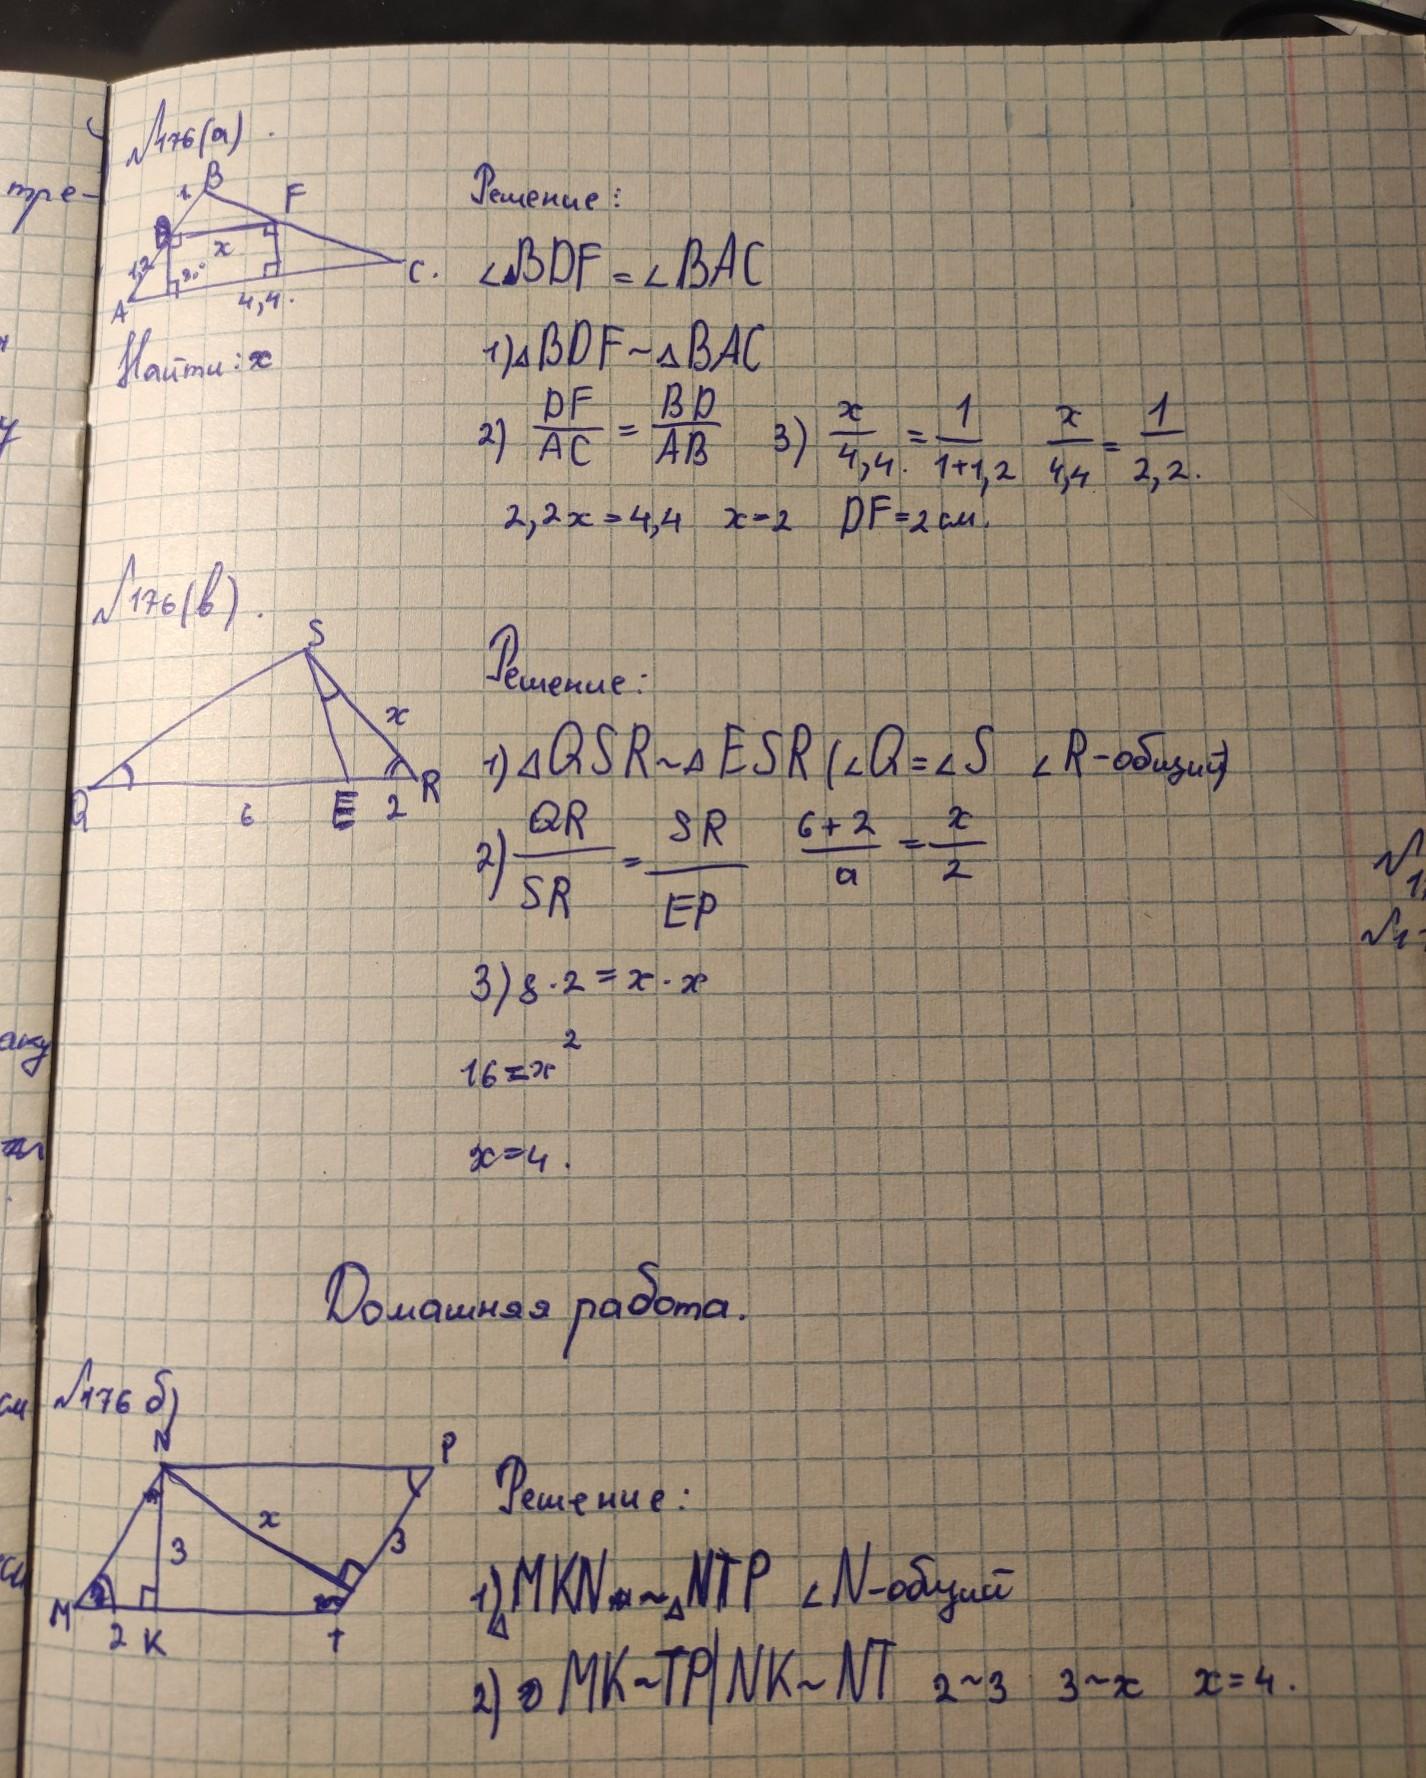 тре-
№176(а).
B
1
F
x
1,2
A
4,4.
C.
Найти: x
Решение:
∠BDF = ∠BAC
1) △BDF ~ △BAC
2) DF/AC = BD/AB 3) x/4,4. = 1/1+1,2 x/4,4 = 1/2,2.
2,2x = 4,4 x = 2 DF = 2 см.
№176(в).
S
x
Q
6
E
2
R
Решение:
1) △QSR ~ △ESR (∠Q = ∠S ∠R-общий)
2) QR/SR = SR/EP 6+2/a = x/2
3) 8·2 = x·x
16 = x²
x = 4.
Домашняя работа.
№176 б)
N
P
x
3
3
M
2
K
T
Решение:
1) △MKN ~ △NTP ∠N-общий
2) MK~TP | NK~NT 2~3 3~x x = 4.